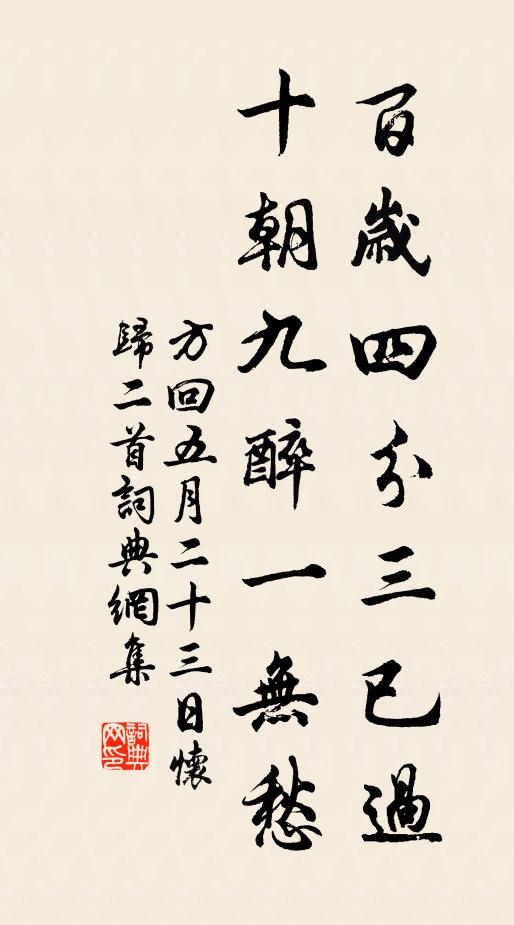 百歲四分三已過
十朝九醉一無愁
方回五月二十三日懷
歸二首詞典網集
詞典
网印